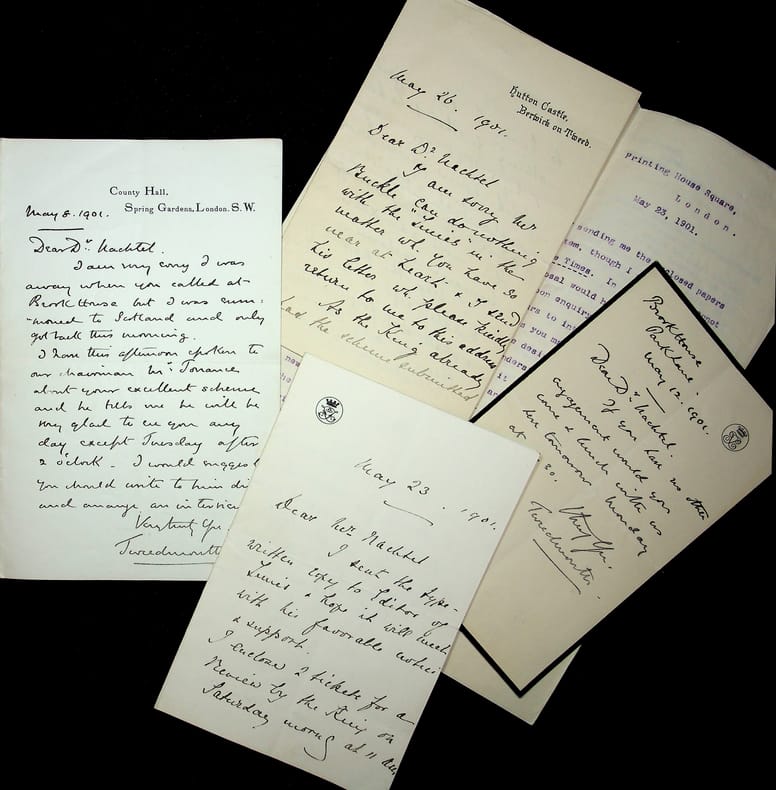 County Hall,
Spring Gardens, London. S.W.
May 8. 1901.
Dear Dr. Nachtel.
I am very sorry I was
away when you called at
Brook House but I was sum-
-moned to Scotland and only
got back this morning.
I have this afternoon spoken to
our chairman Mr Torrance
about your excellent scheme
and he tells me he will be
very glad to see you any
day except Tuesday after
2 o'clock. I would suggest
you should write to him di
and arrange an interview
Very truly yrs
Tweedmouth
Hutton Castle,
Berwick on Tweed.
May 26. 1901.
Dear Dr. Nachtel
I am sorry Mr
Buckle can do nothing
with the "Times" in the
matter wh. you have so
near at heart & I send
his letter wh. please kindly
return to me to this address
As the King already
had the scheme submitted
Printing House Square,
London.
May 23, 1901.
sending me the closed papers
tem, though I
e Times. In
osal would b
on enquir
rs to in
s you m
desi
ders
it
ar
new
May 23. 1901.
Dear Mr Nachtel
I sent the type-
written copy to Editor of
Times & hope it will meet
with his favorable notice
& support.
I enclose 2 tickets for a
Review by the King on
Saturday morng at 11
Brook House
Park Lane.
May 12. 1901.
Dear Dr. Nachtel.
If you have no other
engagement would you
come & lunch with us
here tomorrow Monday
at 30.
Vy truly yrs.
Tweedmouth.